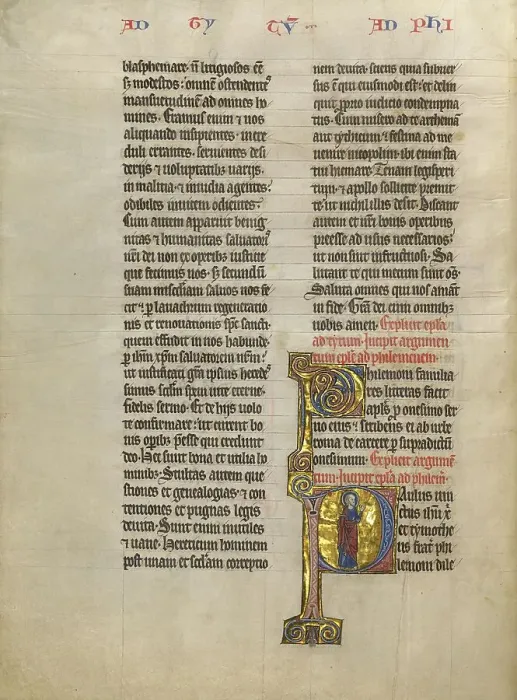 AD TYTV̄ AD PHI
blasphemare. n̄ litigiosos eē
s; modestos: omnē ostendentes
mansuetudinē ad omnes ho
mines. Eramus enim ⁊ nos
aliquando insipientes. incre
duli errantes. seruientes desi
deriis ⁊ uoluptatibus uariis.
in malitia ⁊ inuidia agentes.
odibiles inuicem odientes.
Cum autem apparuit benig
nitas ⁊ humanitas saluatoris
nr̄i dei non ex operibus iustitie
que fecimus nos. s; secundū
suam misc̄diam saluos nos fe
cit ⁊ p lauachrum regeneratio
nis et renouationis sp̄c sancti.
quem effudit in nos habunde.
p ih̄m xp̄m saluatorem nr̄m.
ut iustificati gr̄a ipsius heredes
simus scd̄m spem uite eterne.
fidelis sermo. Et de hijs uolo
te confirmare: ut curent bo
nis opibus peesse qui credunt
deo. Hec sunt bona et utilia ho
minibus. Stultas autem que
stiones et genealogias ⁊ con
tentiones et pugnas legis
deuita. Sunt enim inutiles
⁊ uane. Hereticum hominem
post unam et scd̄am correptio
nem deuita. sciens quia subuer
sus ē qui eiusmodi est. et delin
quit pprio iudicio condempna
tus. Cum misero ad te arthemā
aut tythicum ⁊ festina ad me
uenire nicopolim. ibi enim sta
tui hiemare. Zenam legisperi
tum. ⁊ apollo sollicite premit
te. ut nichil illis desit. Discant
autem et nr̄i bonis operibus
preesse ad usus necessarios.
ut non sint infructuosi. Sa
lutant te qui mecum sunt oēs.
Saluta omnes qui nos amāt
in fide. Gr̄a dei cum omnibus
uobis amen. Explicit epl̄a
ad tytum. Incipit argumen
tum epl̄e ad philemonem.
Philemoni familia
res litteras facit
apl̄s p onesimo ser
uo eius. scribens ei ab urbe
roma de carcere p supradictū
onesimum. Explicit argumē
tum. Incipit epl̄a ad philem̄.
Paulus uin
ctus ih̄u x̄
et tymothe
us frat̄ phi
lemoni dile